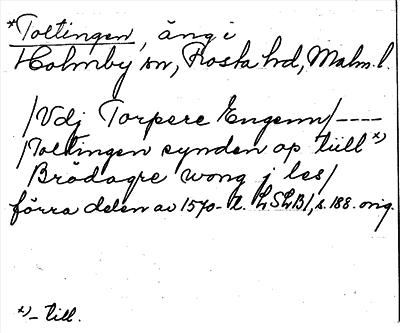 *Toltingen, äng i
Holmby sn, Frosta hd, Malm. l.
/Vdj Torpere Engenn/----
/Toltingen synden op tiill *)
Brödagre wong j les/
förra delen av 1570-t. LSLB/, s. 188. orig.
*)- till.